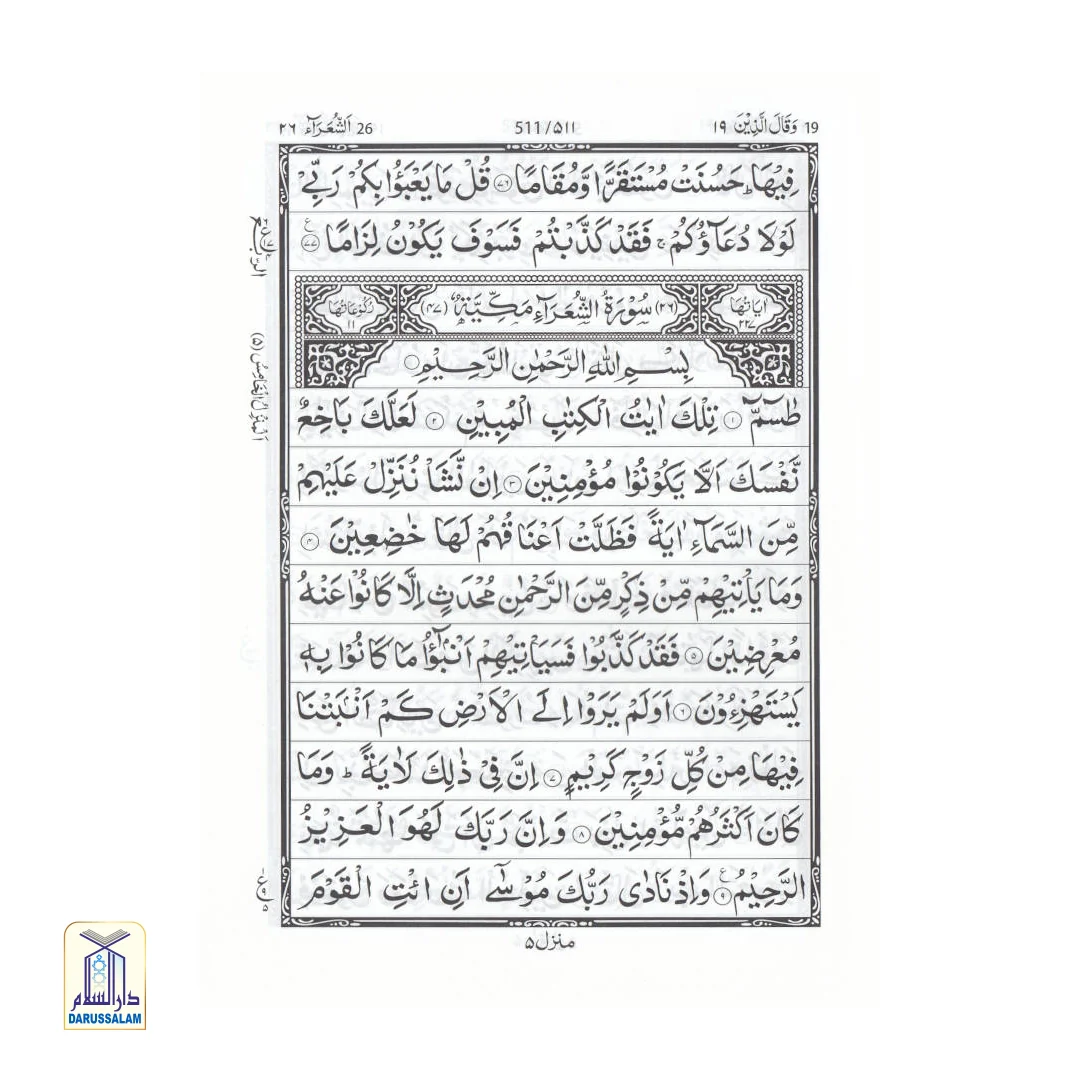 19 وَقَالَ الَّذِيْنَ ١٩
511/۵۱۱
26 اَلشُّعَرَآء ٢٦
فِيْهَا ؕ حَسُنَتْ مُسْتَقَرًّا وَّمُقَامًا ۝۷۶ قُلْ مَا يَعْبَؤُا بِكُمْ رَبِّيْ
لَوْلَا دُعَآؤُكُمْ ۚ فَقَدْ كَذَّبْتُمْ فَسَوْفَ يَكُوْنُ لِزَامًا ۝۷۷ ع
اٰيَاتُهَا ۲۲۷
(۲۶) سُوْرَةُ الشُّعَرَآءِ مَكِّيَّةٌ (۴۷)
رُكُوْعَاتُهَا ۱۱
بِسْمِ اللّٰهِ الرَّحْمٰنِ الرَّحِيْمِ ۝
طٰسٓمّٓ ۝۱ تِلْكَ اٰيٰتُ الْكِتٰبِ الْمُبِيْنِ ۝۲ لَعَلَّكَ بَاخِعٌ
نَّفْسَكَ اَلَّا يَكُوْنُوْا مُؤْمِنِيْنَ ۝۳ اِنْ نَّشَاْ نُنَزِّلْ عَلَيْهِمْ
مِّنَ السَّمَآءِ اٰيَةً فَظَلَّتْ اَعْنَاقُهُمْ لَهَا خٰضِعِيْنَ ۝۴
وَمَا يَاْتِيْهِمْ مِّنْ ذِكْرٍ مِّنَ الرَّحْمٰنِ مُحْدَثٍ اِلَّا كَانُوْا عَنْهُ
مُعْرِضِيْنَ ۝۵ فَقَدْ كَذَّبُوْا فَسَيَاْتِيْهِمْ اَنْۢبٰٓؤُا مَا كَانُوْا بِهٖ
يَسْتَهْزِءُوْنَ ۝۶ اَوَلَمْ يَرَوْا اِلَى الْاَرْضِ كَمْ اَنْۢبَتْنَا
فِيْهَا مِنْ كُلِّ زَوْجٍ كَرِيْمٍ ۝۷ اِنَّ فِيْ ذٰلِكَ لَاٰيَةً ؕ وَمَا
كَانَ اَكْثَرُهُمْ مُّؤْمِنِيْنَ ۝۸ وَاِنَّ رَبَّكَ لَهُوَ الْعَزِيْزُ
الرَّحِيْمُ ۝۹ ع وَاِذْ نَادٰى رَبُّكَ مُوْسٰٓى اَنِ ائْتِ الْقَوْمَ
اَلْمَنْزِلُ الْخَامِسُ (۵)
منزل ۵
دار السلام
DARUSSALAM